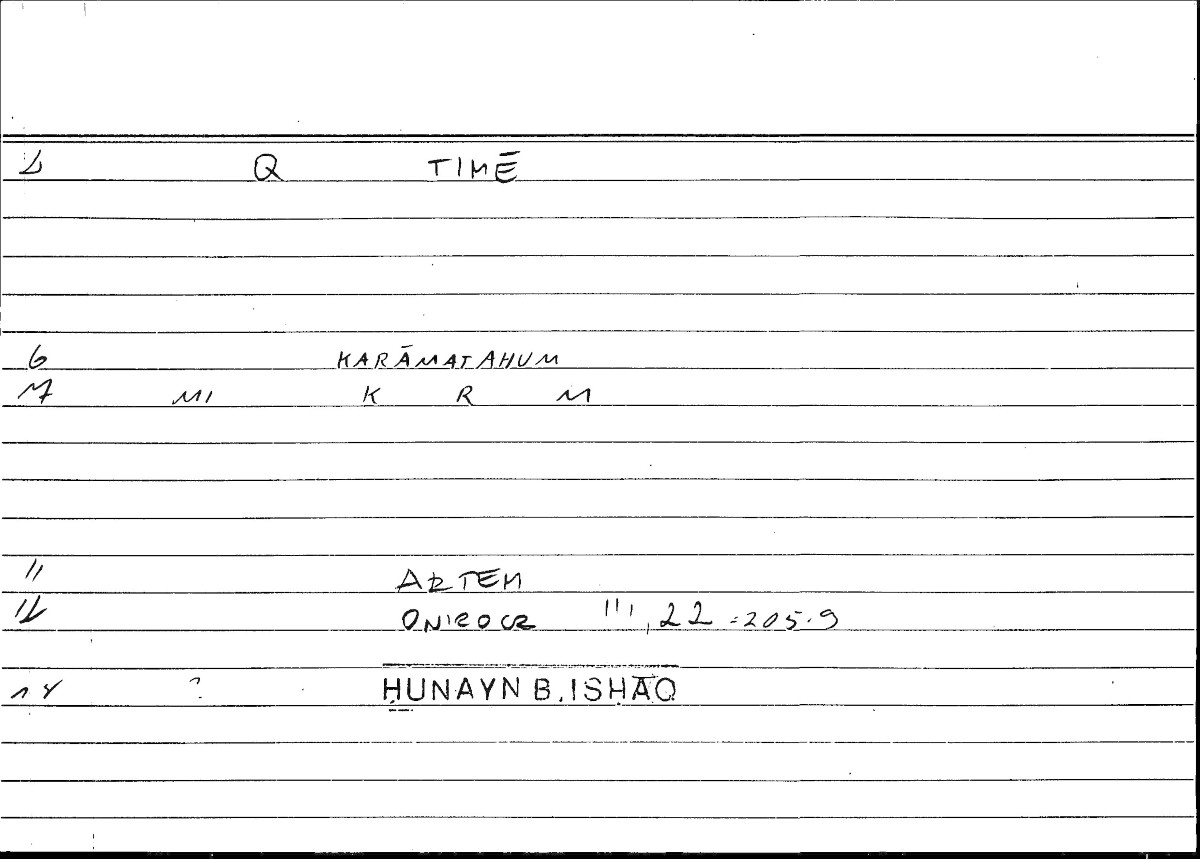 Q TIMĒ
6 KARĀMATAHUM
7 MI K R M
11 ARTEM
12 ONIROCR III, 22 = 205.9
14 ? ḤUNAYN B. ISḤĀQ